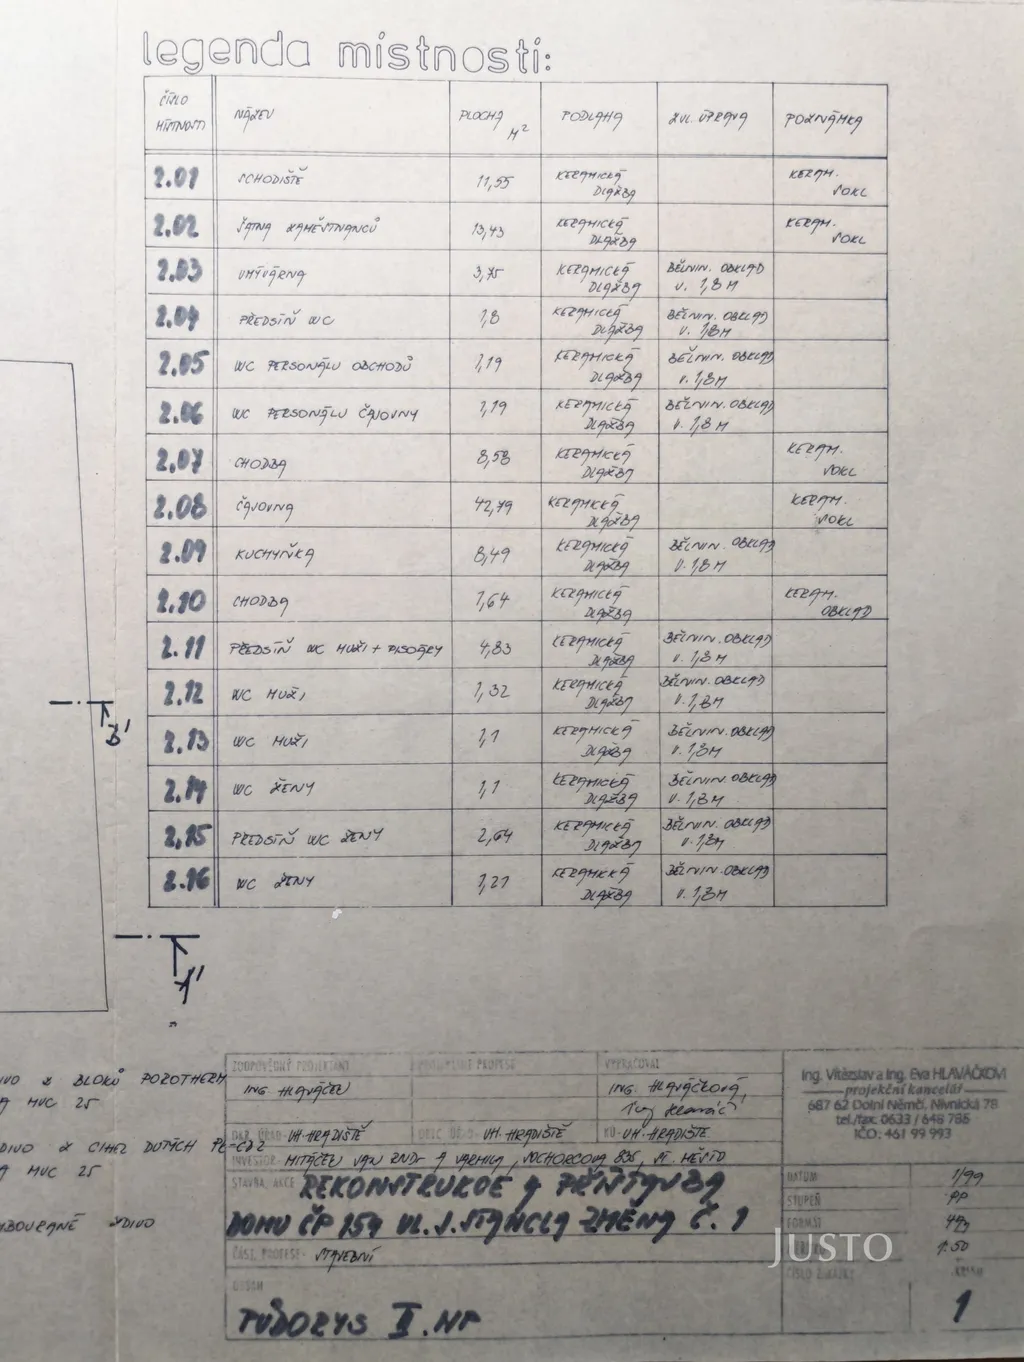 legenda místností:
ČÍSLO MÍSTNOSTI NÁZEV PLOCHA M² PODLAHA ZVL. ÚPRAVA POZNÁMKA
2.01 SCHODIŠTĚ 11,55 KERAMICKÁ DLAŽBA KERAM. SOKL
2.02 ŠATNA ZAMĚSTNANCŮ 13,43 KERAMICKÁ DLAŽBA KERAM. SOKL
2.03 UMÝVÁRNA 3,75 KERAMICKÁ DLAŽBA BĚLNIN. OBKLAD V. 1,8 M
2.04 PŘEDSÍŇ WC 1,8 KERAMICKÁ DLAŽBA BĚLNIN. OBKLAD V. 1,8 M
2.05 WC PERSONÁLU OBCHODŮ 1,19 KERAMICKÁ DLAŽBA BĚLNIN. OBKLAD V. 1,8 M
2.06 WC PERSONÁLU ČAJOVNY 1,19 KERAMICKÁ DLAŽBA BĚLNIN. OBKLAD V. 1,8 M
2.07 CHODBA 8,58 KERAMICKÁ DLAŽBA KERAM. SOKL
2.08 ČAJOVNA 42,79 KERAMICKÁ DLAŽBA KERAM. SOKL
2.09 KUCHYŇKA 8,49 KERAMICKÁ DLAŽBA BĚLNIN. OBKLAD V. 1,8 M
2.10 CHODBA 1,64 KERAMICKÁ DLAŽBA KERAM. OBKLAD
2.11 PŘEDSÍŇ WC MUŽI + PISOÁRY 4,83 KERAMICKÁ DLAŽBA BĚLNIN. OBKLAD V. 1,8 M
2.12 WC MUŽI 1,32 KERAMICKÁ DLAŽBA BĚLNIN. OBKLAD V. 1,8 M
2.13 WC MUŽI 1,1 KERAMICKÁ DLAŽBA BĚLNIN. OBKLAD V. 1,8 M
2.14 WC ŽENY 1,1 KERAMICKÁ DLAŽBA BĚLNIN. OBKLAD V. 1,8 M
2.15 PŘEDSÍŇ WC ŽENY 2,64 KERAMICKÁ DLAŽBA BĚLNIN. OBKLAD V. 1,8 M
2.16 WC ŽENY 1,21 KERAMICKÁ DLAŽBA BĚLNIN. OBKLAD V. 1,8 M
1'
IVO Z BLOKŮ POROTHERM
A MVC 25
DIVO Z CIHEL DUTÝCH
A MVC 25
BOURANÉ ZDIVO
ZODPOVĚDNÝ PROJEKTANT VYPRACOVAL
ING. HLAVÁČEK ING. HLAVÁČKOVÁ,
Ing. Hlaváč
UH. HRADIŠTĚ UH. HRADIŠTĚ KÚ- UH. HRADIŠTĚ
INVESTOR-
STAVBA, AKCE REKONSTRUKCE A PŘÍSTAVBA
DOMU ČP 159 UL. J. STANCLA ZMĚNA Č. 1
ČÁST, PROFESE- STAVEBNÍ
OBSAH
PŮDORYS II. NP
Ing. Vítězslav a Ing. Eva HLAVÁČKOVI
projekční kancelář
687 62 Dolní Němčí, Nivnická 78
tel./fax: 0633 / 648 786
IČO: 461 99 993
DATUM 1/99
STUPEŇ PP
FORMÁT
1:50
ČÍSLO ZAKÁZKY
1
JUSTO